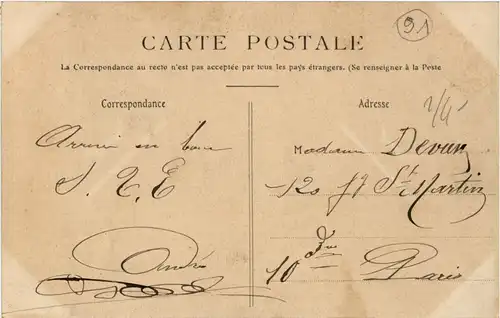 91
CARTE POSTALE
La Correspondance au recto n'est pas acceptée par tous les pays étrangers. (Se renseigner à la Poste
Correspondance
Adresse
Arrivé en bon
S. T. E
André
Madame Devun
120 fg St Martin
10
Paris